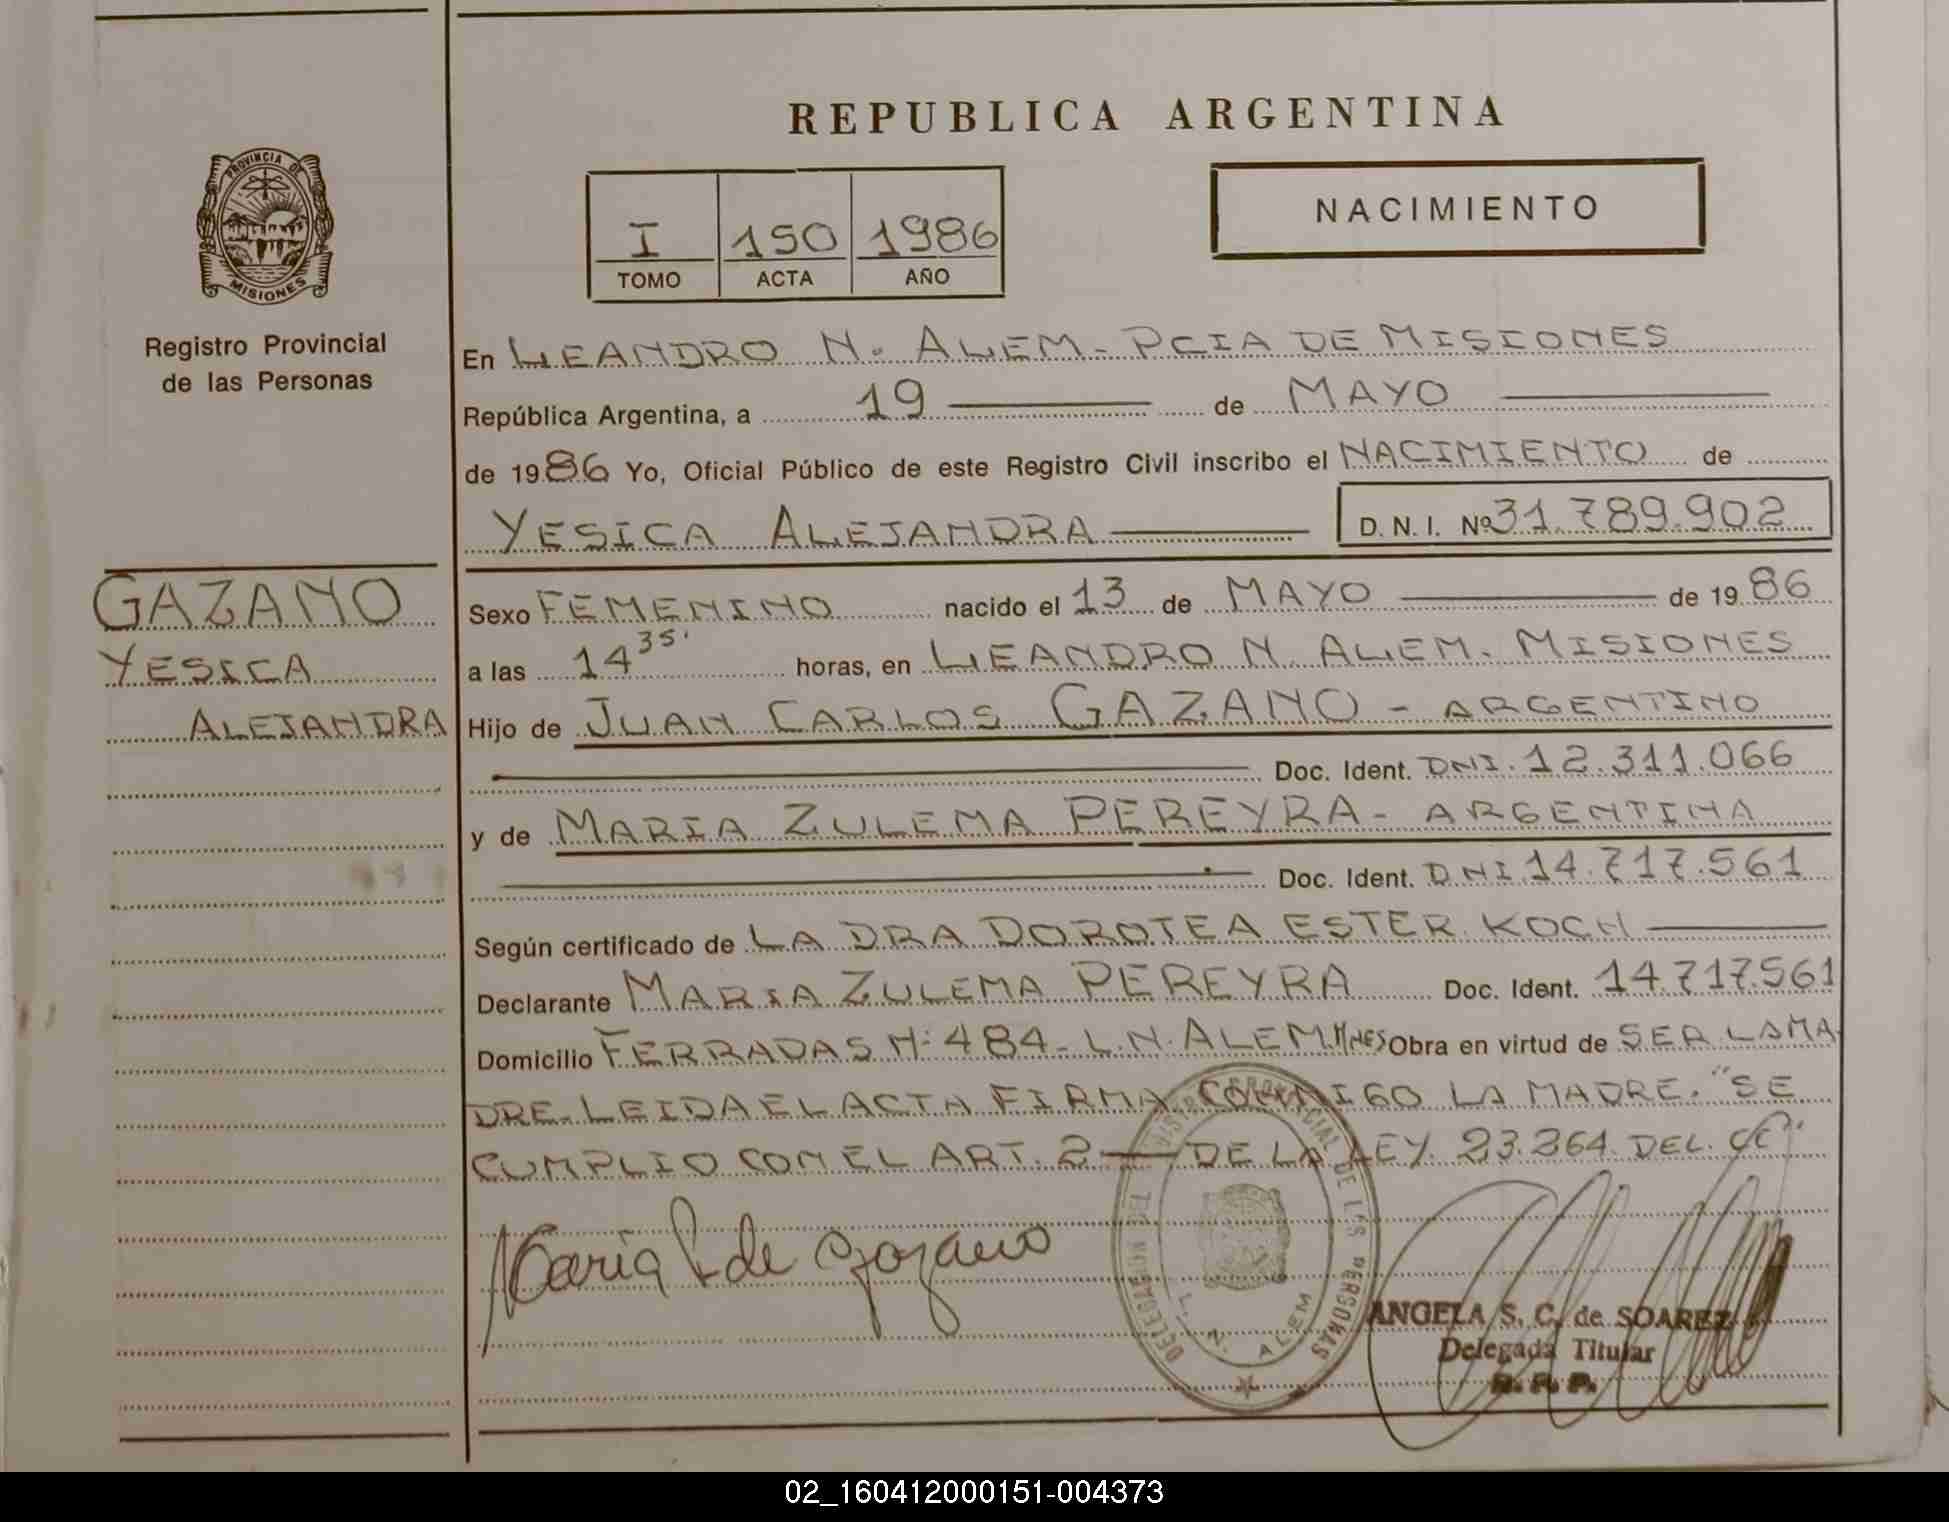 REPUBLICA ARGENTINA
PROVINCIA DE
MISIONES
Registro Provincial
de las Personas
I 150 1986
TOMO ACTA AÑO
NACIMIENTO
En LEANDRO N. ALEM - PCIA DE MISIONES
República Argentina, a 19 de MAYO
de 1986 Yo, Oficial Público de este Registro Civil inscribo el NACIMIENTO de
YESICA ALEJANDRA D. N. I. Nº 31.789.902
GAZANO
YESICA
ALEJANDRA
Sexo FEMENINO nacido el 13 de MAYO de 1986
a las 14 35' horas, en LEANDRO N. ALEM. MISIONES
Hijo de JUAN CARLOS GAZANO - ARGENTINO
Doc. Ident. DNI. 12.311.066
y de MARIA ZULEMA PEREYRA - ARGENTINA
Doc. Ident. DNI 14.717.561
Según certificado de LA DRA DOROTEA ESTER KOCH
Declarante MARIA ZULEMA PEREYRA Doc. Ident. 14.717.561
Domicilio FERRADAS Nº 484 - L.N. ALEM. MNES Obra en virtud de SER LA MA
DRE. LEIDA EL ACTA FIRMA CONMIGO LA MADRE. "SE
CUMPLIO CON EL ART. 2 — DE LA LEY. 23.264. DEL. CC".
Maria P de Gazano
DELEGACION DEL REGISTRO PROVINCIAL DE LAS PERSONAS
L. N. ALEM
ANGELA S. C. de SOAREZ
Delegada Titular
R. P. P.
02_160412000151-004373